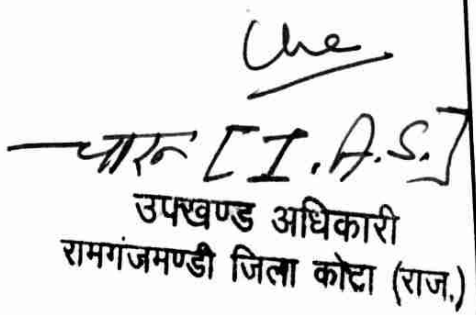 चारू [I.A.S.]
उपखण्ड अधिकारी
रामगंजमण्डी जिला कोटा (राज.)